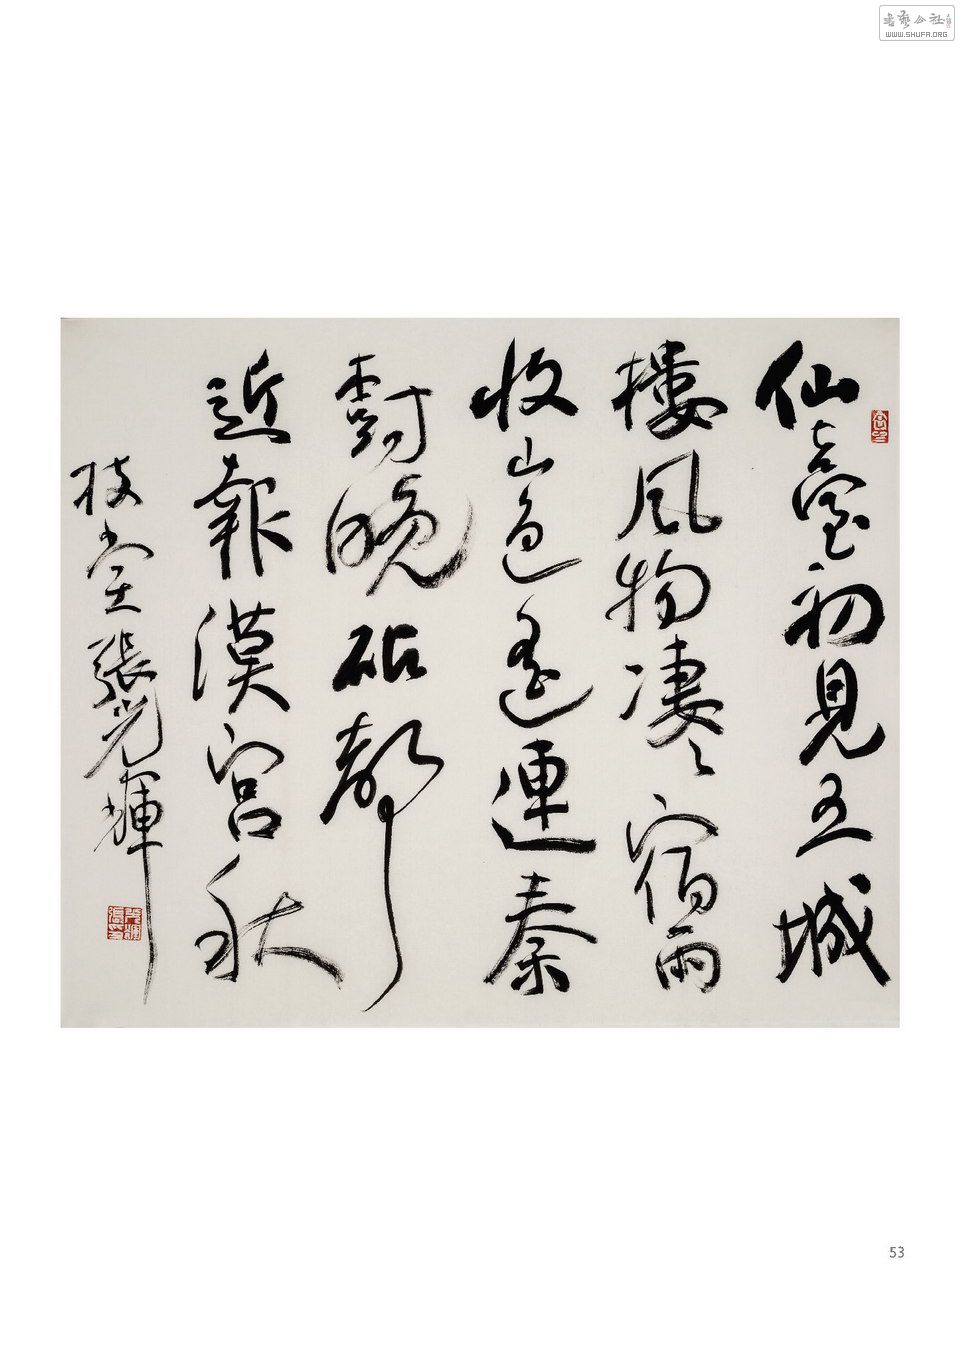 書藝公社
WWW.SHUFA.ORG
仙臺初見五城
樓風物凄〻宿雨
收山色遥連秦
樹晚砧聲
近報漢宮秋
枝堂張光輝
53